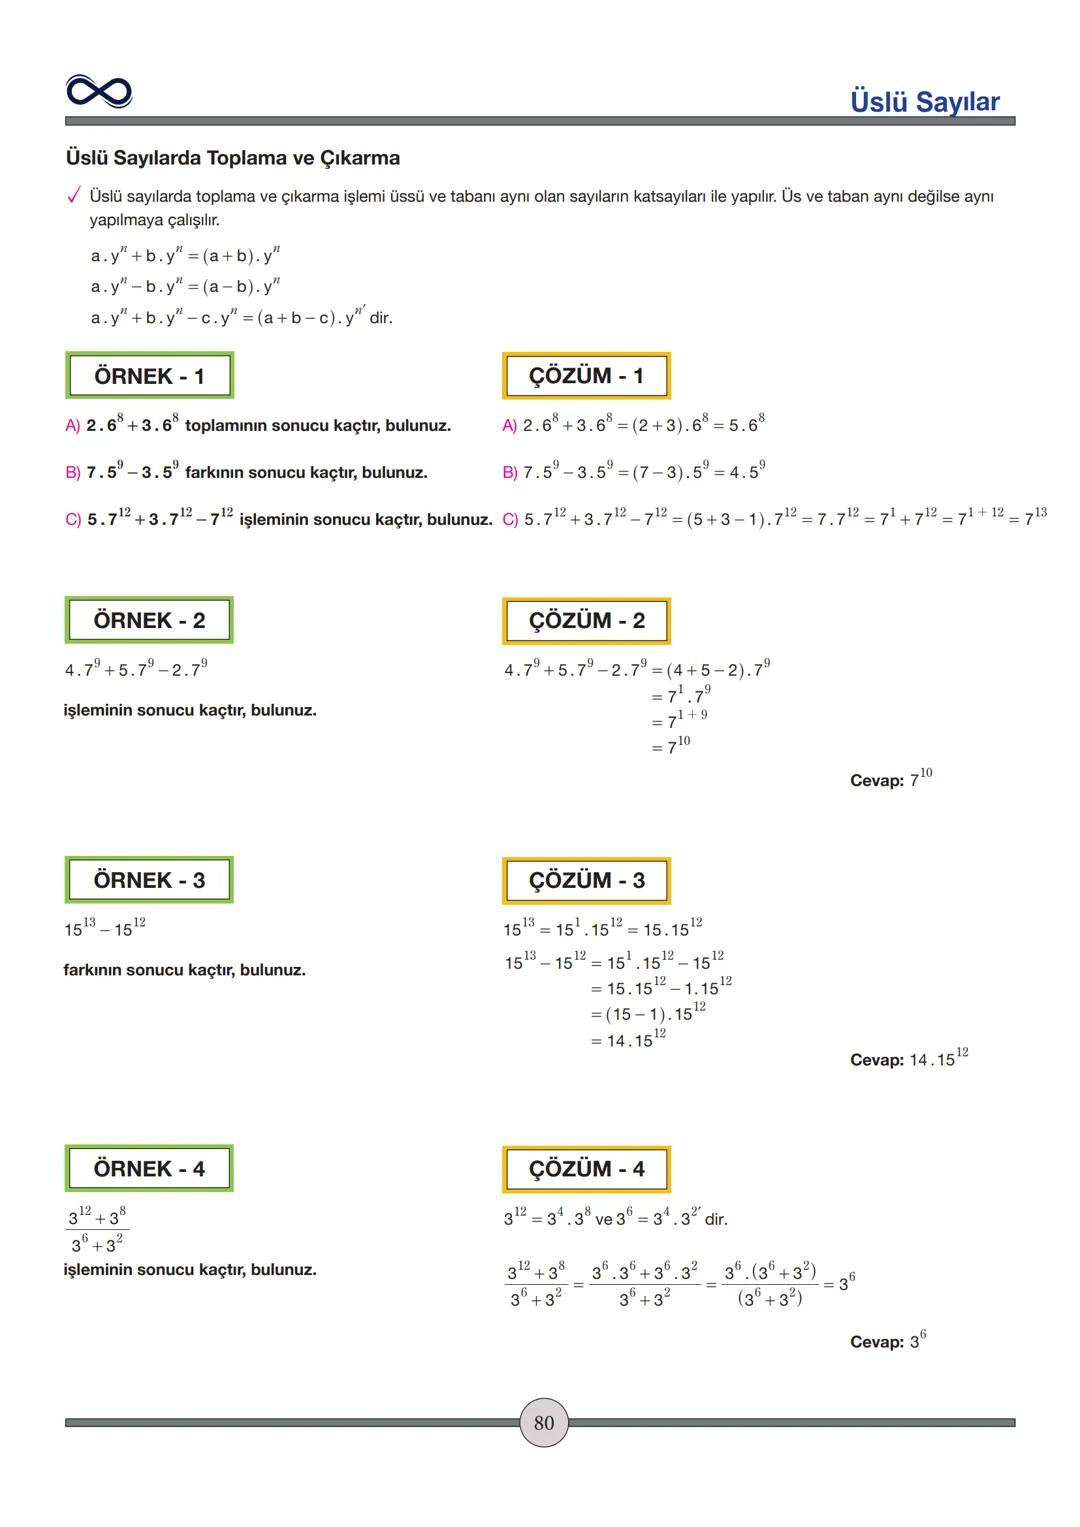 Üslü Sayılar
Üslü Sayılarda Toplama ve Çıkarma
✓ Üslü sayılarda toplama ve çıkarma işlemi üssü ve tabanı aynı olan sayıların katsayıları ile yapılır. Üs ve taban aynı değilse aynı
yapılmaya çalışılır.
a.yⁿ + b.yⁿ = (a + b).yⁿ
a.yⁿ − b.yⁿ = (a − b).yⁿ
a.yⁿ + b.yⁿ − c.yⁿ = (a + b − c).yⁿ′ dir.
ÖRNEK - 1
A) 2.6⁸ + 3.6⁸ toplamının sonucu kaçtır, bulunuz.
B) 7.5⁹ − 3.5⁹ farkının sonucu kaçtır, bulunuz.
C) 5.7¹² + 3.7¹² − 7¹² işleminin sonucu kaçtır, bulunuz.
ÇÖZÜM - 1
A) 2.6⁸ + 3.6⁸ = (2 + 3).6⁸ = 5.6⁸
B) 7.5⁹ − 3.5⁹ = (7 − 3).5⁹ = 4.5⁹
C) 5.7¹² + 3.7¹² − 7¹² = (5 + 3 − 1).7¹² = 7.7¹² = 7¹ + 7¹² = 7¹⁺¹² = 7¹³
ÖRNEK - 2
4.7⁹ + 5.7⁹ − 2.7⁹
işleminin sonucu kaçtır, bulunuz.
ÇÖZÜM - 2
4.7⁹ + 5.7⁹ − 2.7⁹ = (4 + 5 − 2).7⁹
= 7¹.7⁹
= 7¹⁺⁹
= 7¹⁰
Cevap: 7¹⁰
ÖRNEK - 3
15¹³ − 15¹²
farkının sonucu kaçtır, bulunuz.
ÇÖZÜM - 3
15¹³ = 15¹.15¹² = 15.15¹²
15¹³ − 15¹² = 15¹.15¹² − 15¹²
= 15.15¹² − 1.15¹²
= (15 − 1).15¹²
= 14.15¹²
Cevap: 14.15¹²
ÖRNEK - 4
3¹² + 3⁸
3⁶ + 3²
işleminin sonucu kaçtır, bulunuz.
ÇÖZÜM - 4
3¹² = 3⁴.3⁸ ve 3⁶ = 3⁴.3²′ dir.
(3¹² + 3⁸)/(3⁶ + 3²) = (3⁶.3⁶ + 3⁶.3²)/(3⁶ + 3²) = 3⁶.(3⁶ + 3²)/(3⁶ + 3²) = 3⁶
Cevap: 3⁶
80